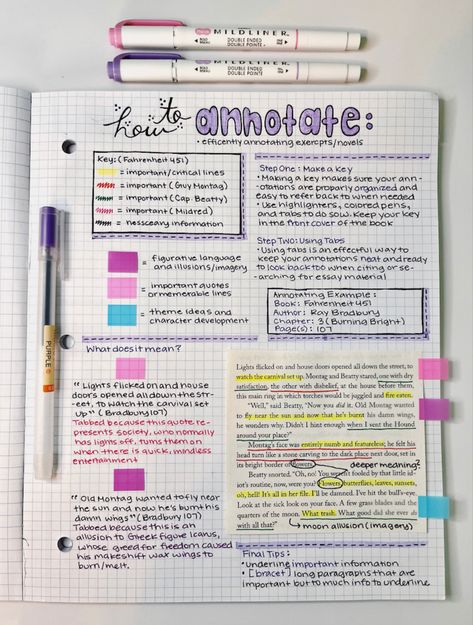 MILDLINER
DOUBLE ENDED
DOUBLE POINTE
MILDLINER
DOUBLE ENDED
DOUBLE POINTE
how to annotate:
• efficently annotating exercpts/novels
Key: (Fahrenheit 451)
= important/critical lines
= important (Guy Montag)
= important (Cap. Beatty)
= important (Mildred)
= nessceary information
= figurative language
and illusions/imagery
= important quotes
or memerable lines
= theme ideas and
character development
Step One: Make a Key
• Making a key makes sure your ann-
otations are properly organized and
easy to refer back to when needed
• Use highlighters, colored pens,
and tabs to do sow. Keep your key
in the front cover of the book
Step Two: Using Tabs
• Using tabs is an effectful way to
keep your annotations neat and ready
to look back too when citing or se-
arching for essay material
Annotating Example:
Book: Fahrenheit 451
Author: Ray Bradbury
Chapter: 3 (Burning Bright)
Page(s): 107
PURPLE
What does it mean?
"Lights flicked on and house
doors opened all down the str-
eet, to watch the carnival set
up" (Bradbury 107)
Tabbed because this quote re-
presents society, who normally
has lights off, turns them on
when there is quick, mindless
entertainment
"Old Montag wanted to fly near
the sun and now he's burnt his
damn wings" (Bradbury 107)
Tabbed because this is an
allusion to Greek figure Icarus,
whose greed for freedom caused
his makeshift wax wings to
burn/melt.
Lights flicked on and house doors opened all down the street, to
watch the carnival set up. Montag and Beatty stared, one with dry
satisfaction, the other with disbelief, at the house before them,
this main ring in which torches would be juggled and fire eaten.
"Well," said Beatty, "Now you did it. Old Montag wanted
to fly near the sun and now that he's burnt his damn wings,
he wonders why. Didn't I hint enough when I sent the Hound
around your place?"
Montag's face was entirely numb and featureless; he felt his
head turn like a stone carving to the dark place next door, set in
its bright border of flowers.
deeper meaning?
Beatty snorted. "Oh, no! You weren't fooled by that little id-
iot's routine, now, were you? Flowers, butterflies, leaves, sunsets,
oh, hell! It's all in her file. I'll be damned. I've hit the bull's-eye.
Look at the sick look on your face. A few grass blades and the
quarters of the moon. What trash. What good did she ever do
with all that?"
moon allusion (imagery)
Final Tips:
• underline important information
• [bracket] long paragraphs that are
important but to much info to underline